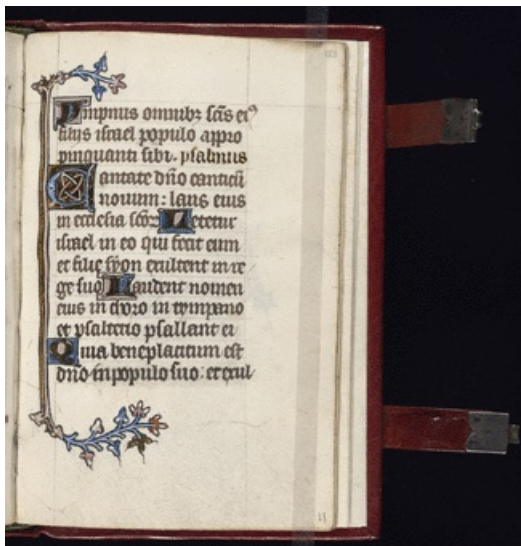 Ympnus omnibꝫ scīs eiꝰ
filiis israel populo appro
pinquanti sibi. psalmus
Cantate dño canticū
novum: laus eius
in ecclesia scōꝝ Letetur
israel in eo qui fecit eum
et filie syon exultent in re
ge suo Laudent nomen
eius in choro in tympano
et psalterio psallant ei
Quia beneplacitum est
dño in populo suo: et exul